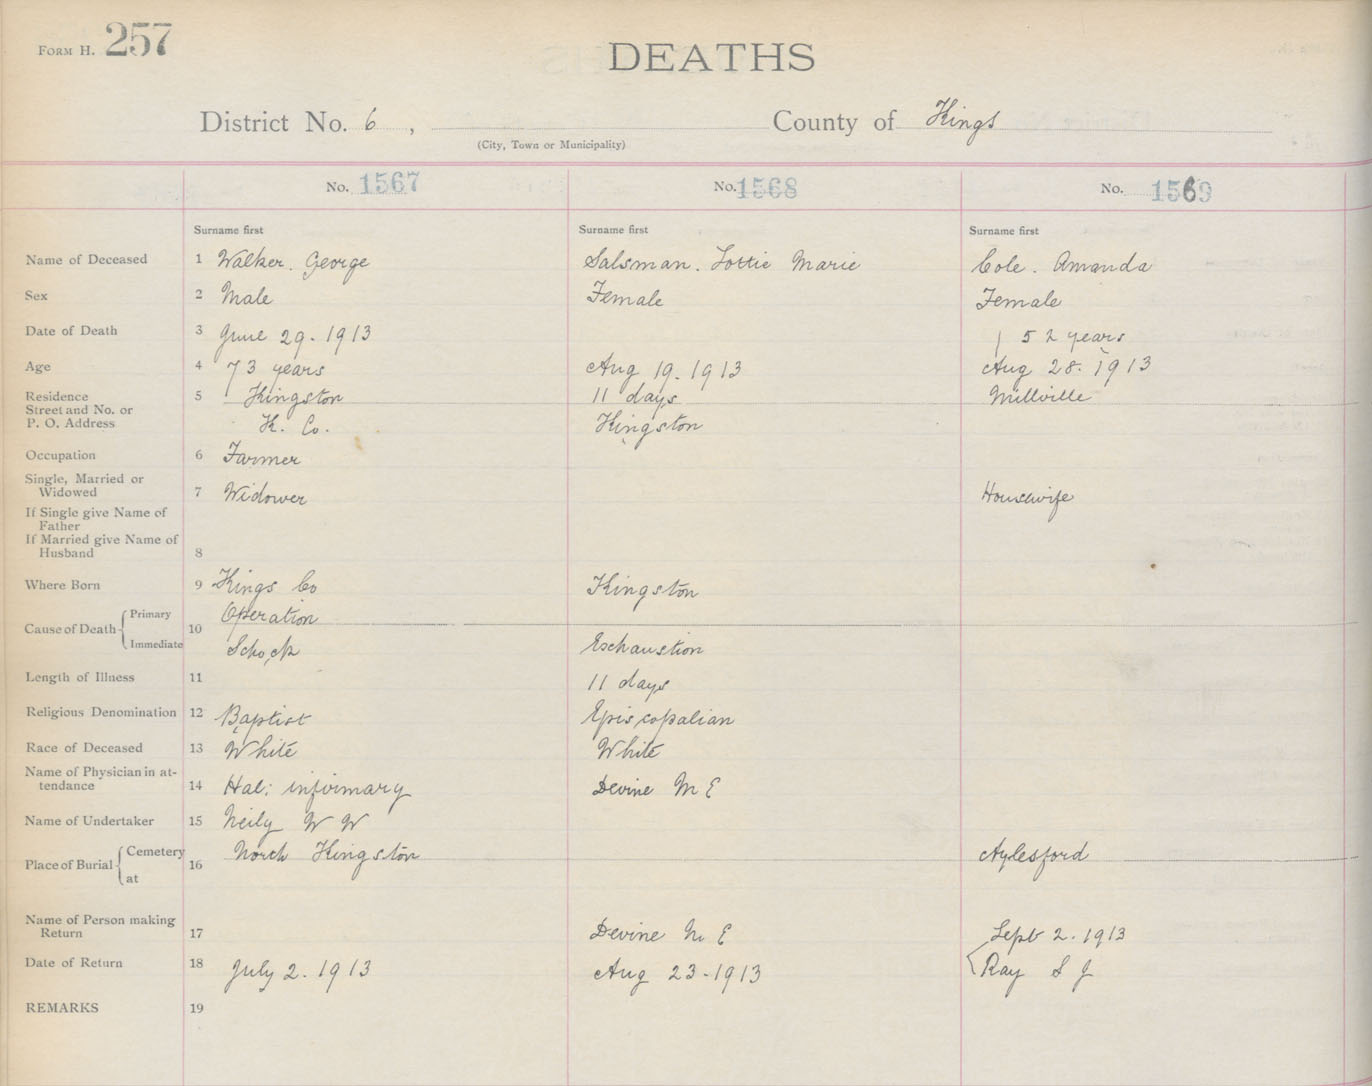 FORM H. 257
DEATHS
District No. 6 , County of Kings
(City, Town or Municipality)
No. 1567 No. 1568 No. 1569
Surname first Surname first Surname first
Name of Deceased 1 Walker. George Salsman. Lottie Marie Cole. Amanda
Sex 2 Male Female Female
Date of Death 3 June 29. 1913 52 years
Age 4 73 years Aug 19. 1913 Aug 28. 1913
Residence 5 Kingston 11 days Millville
Street and No. or
P. O. Address K. Co. Kingston
Occupation 6 Farmer
Single, Married or
Widowed 7 Widower Housewife
If Single give Name of
Father
If Married give Name of
Husband 8
Where Born 9 Kings Co Kingston
Primary Operation
Cause of Death 10
Immediate Schock Exchaustion
Length of Illness 11 11 days
Religious Denomination 12 Baptist Episcopalian
Race of Deceased 13 White White
Name of Physician in at-
tendance 14 Hal: infirmary Devine M E
Name of Undertaker 15 Neily W W
Cemetery North Kingston Aylesford
Place of Burial 16
at
Name of Person making
Return 17 Devine M E Sept 2. 1913
Date of Return 18 July 2. 1913 Aug 23-1913 Ray S J
REMARKS 19